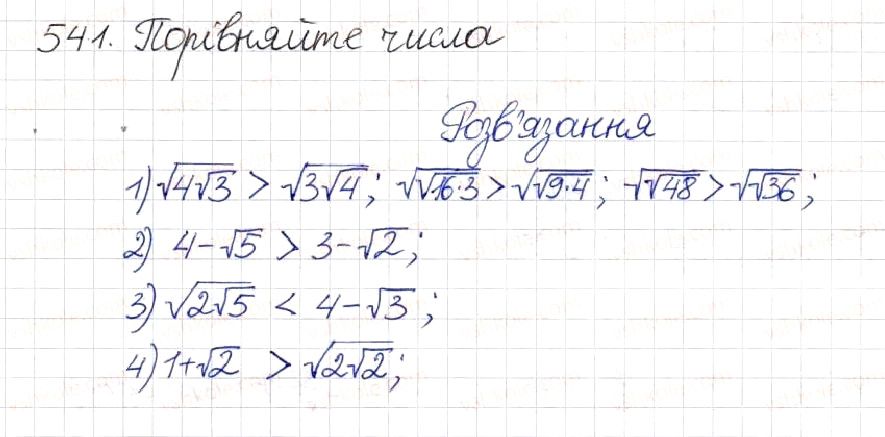 541. Порівняйте числа
Розв'язання
1) √(4√3) > √(3√4); √(√(16·3)) > √(√(9·4)); √(√48) > √(√36);
2) 4-√5 > 3-√2;
3) √(2√5) < 4-√3;
4) 1+√2 > √(2√2);